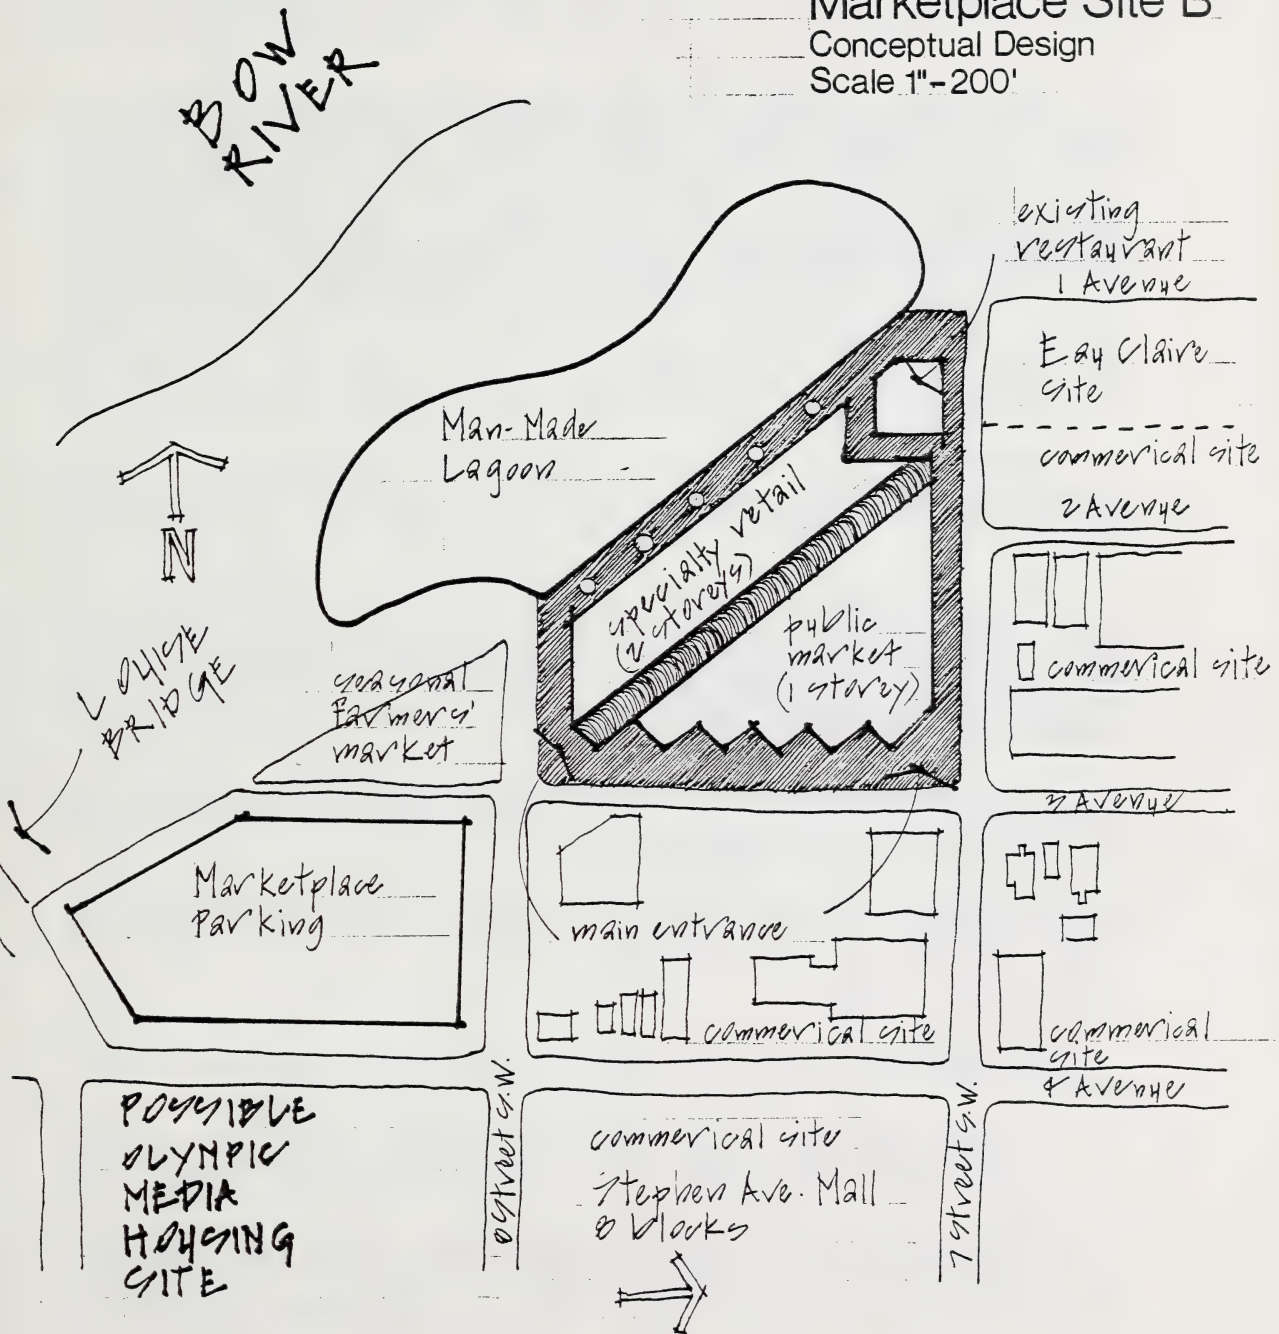 Marketplace Site B
Conceptual Design
Scale 1"-200'
BOW
RIVER
existing
restaurant
1 Avenue
Eau Claire
site
commerical site
2 Avenue
Man-Made
Lagoon
N
specialty retail
(2 storeys)
public
market
(1 storey)
commerical site
LOUISE
BRIDGE
seasonal
farmers'
market
3 Avenue
Marketplace
Parking
main entrance
commerical site
commerical
site
4 Avenue
POSSIBLE
OLYMPIC
MEDIA
HOUSING
SITE
8 Street S.W.
commerical site
Stephen Ave. Mall
8 blocks
7 Street S.W.